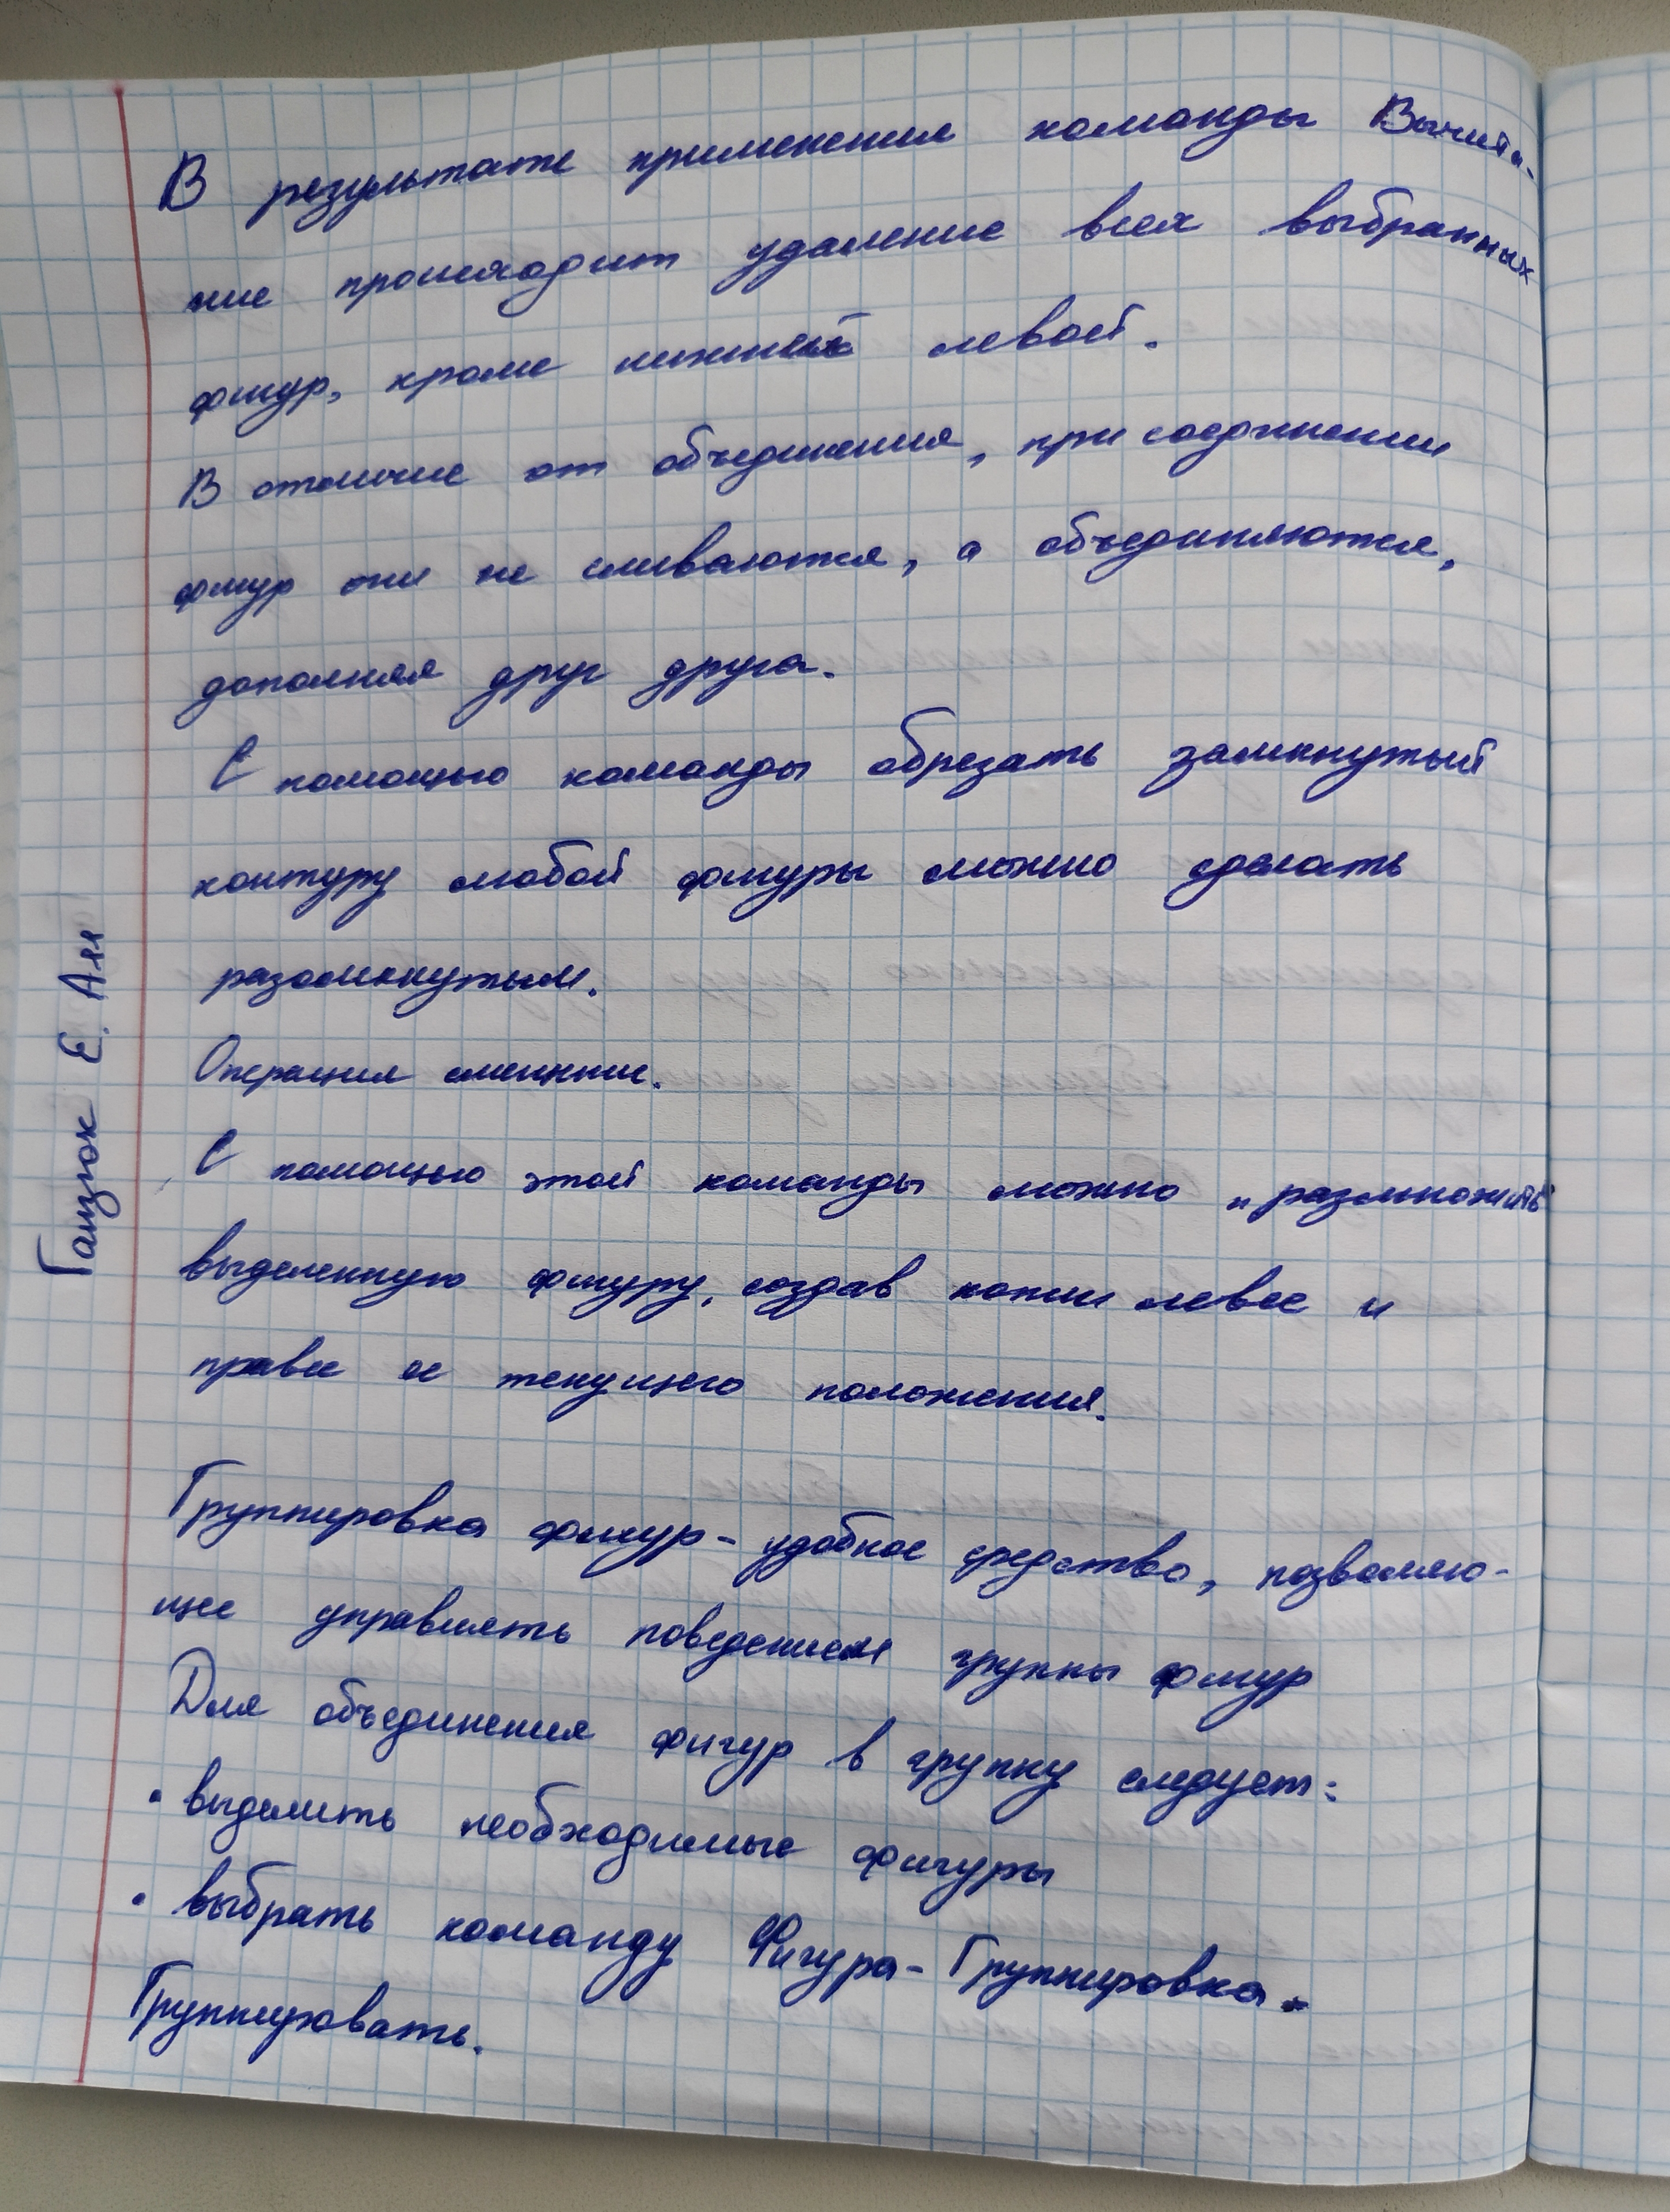 В результате применения команды Вычита-
ние происходит удаление всех выбранных
фигур, кроме нижней левой.
В отличие от объединения, при соединении
фигур они не сливаются, а объединяются,
дополняя друг друга.
С помощью команды обрезать замкнутый
контуру любой фигуры можно сделать
разомкнутым.
Операция смещение.
С помощью этой команды можно "размножить"
выделенную фигуру, создав копии левее и
правее ее текущего положения.
Группировка фигур - удобное средство, позволяю-
щее управлять поведением группы фигур
Для объединения фигур в группу следует:
• выделить необходимые фигуры
• выбрать команду Фигура - Группировка -
Группировать.
Гацюк Е. А